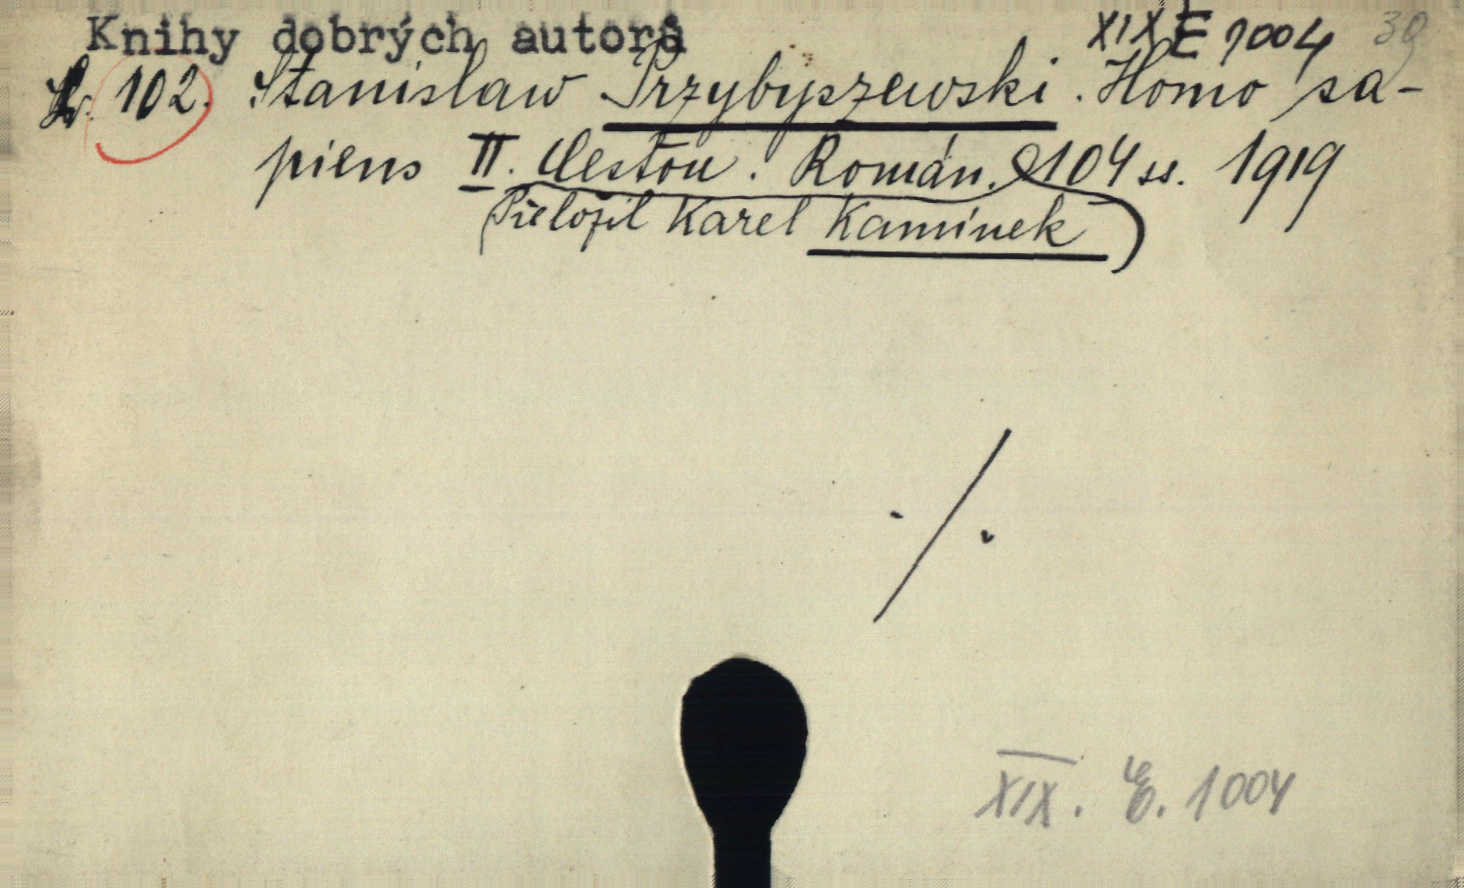 Knihy dobrých autorů XIX E 1004 30
Sv. 102. Stanislaw Przybyszewski. Homo sa-
piens II. Cestou. Román. 104 ss. 1919
(Přeložil Karel Kamínek)
./.
XIX. E. 1004